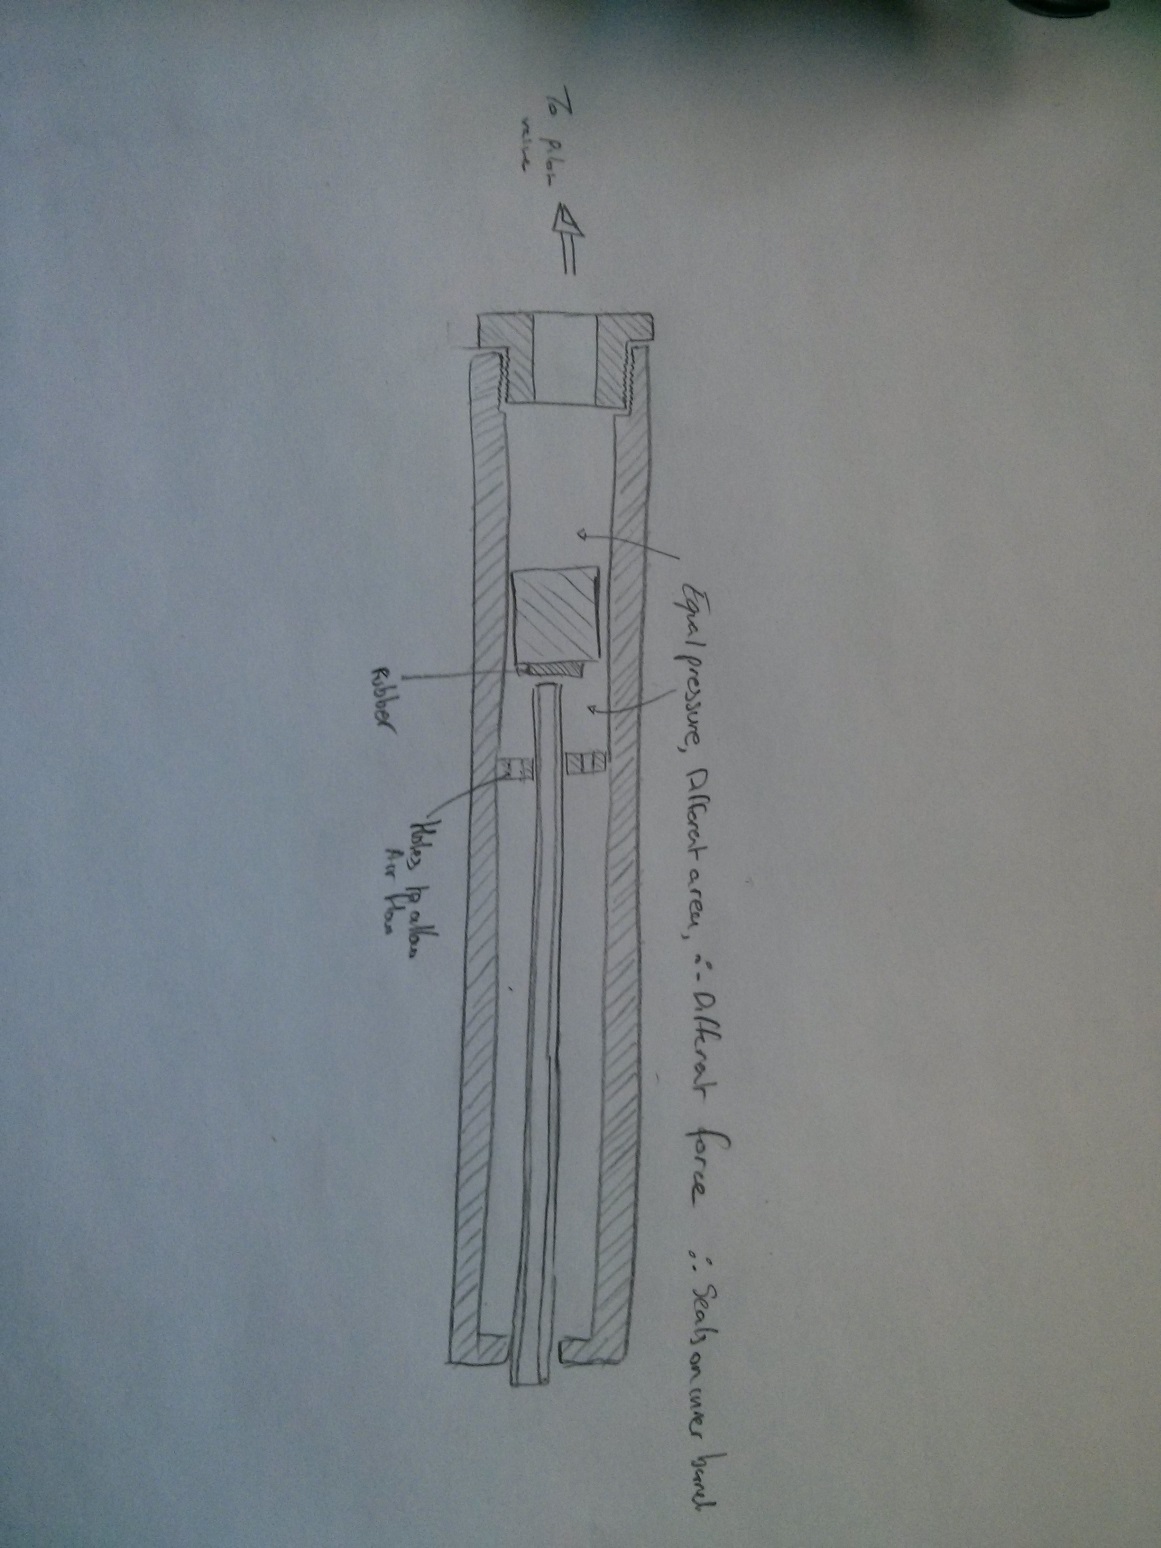 Equal pressure, Different area, ∴ Different force ∴ Seals on inner barrel
To pilot
valve
Rubber
Holes to allow
Air flow